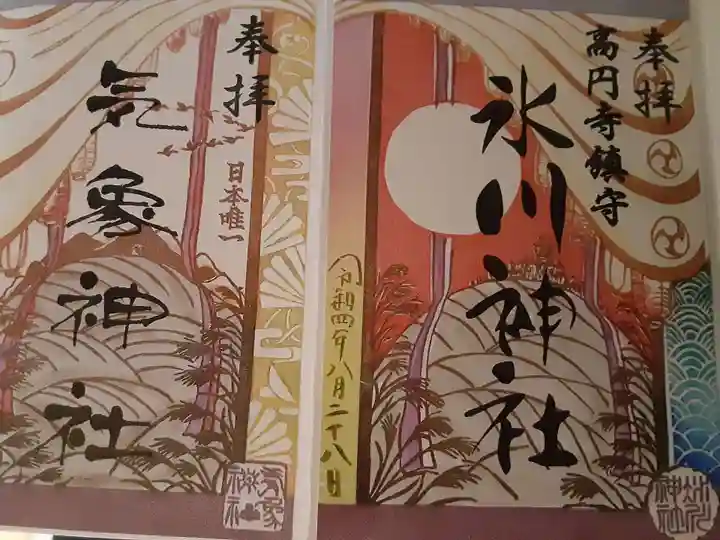 奉拝
高円寺鎮守
氷川神社
令和四年八月二十八日
氷川
神社
奉拝
日本唯一
気象神社
気象
神社